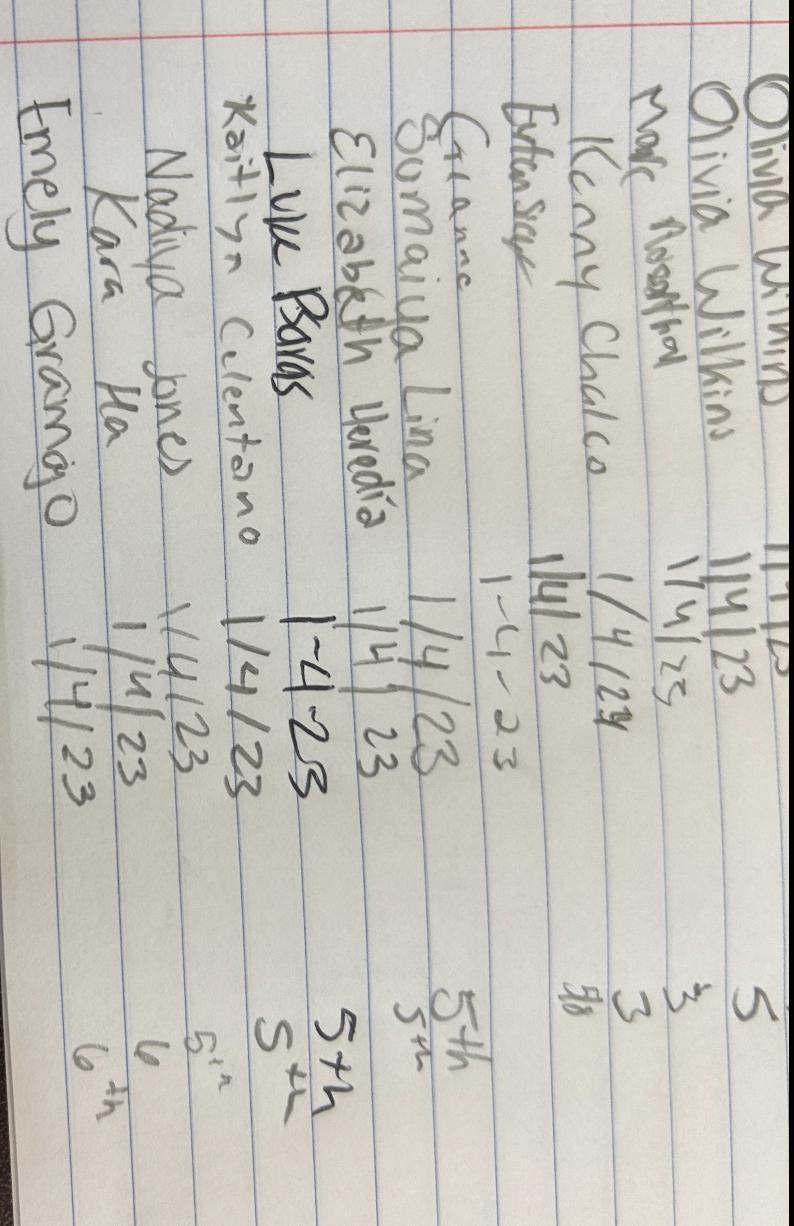 Olivia Wilkins 1/4/23
Olivia Wilkins 1/4/23 5
Marc Rosenthal 1/4/23 3
Kenny Chalco 1/4/23 3
1/4/23
Gianna 1-4-23
Sumaiya Lina 1/4/23 5th
Elizabeth Heredia 1/4/23 5th
Luke Baras 1-4-23 5th
Kaitlyn Celentano 1/4/23 5th
Nadiya Jones 1/4/23 5th
Kara Ha 1/4/23 6
Emely Gramajo 1/4/23 6th